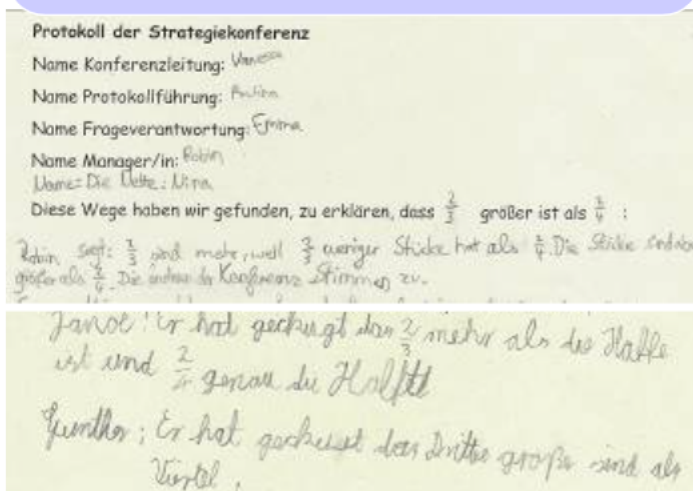 Protokoll der Strategiekonferenz
Name Konferenzleitung: Vanessa
Name Protokollführung:
Name Frageverantwortung: Emma
Name Manager/in: Robin
Name: Die Nette: Nina
Diese Wege haben wir gefunden, zu erklären, dass 2/3 größer ist als 2/4 :
Robin sagt: 2/3 sind mehr, weil 2/3 weniger Stücke hat als 2/4. Die Stücke sind aber
größer als 2/4. Die andere der Konferenz stimmen zu.
Er hat das 2/3 mehr als die Hälfte
ist und 2/4 genau die
Gunther: Er hat das Drittel große sind als
Viertel.